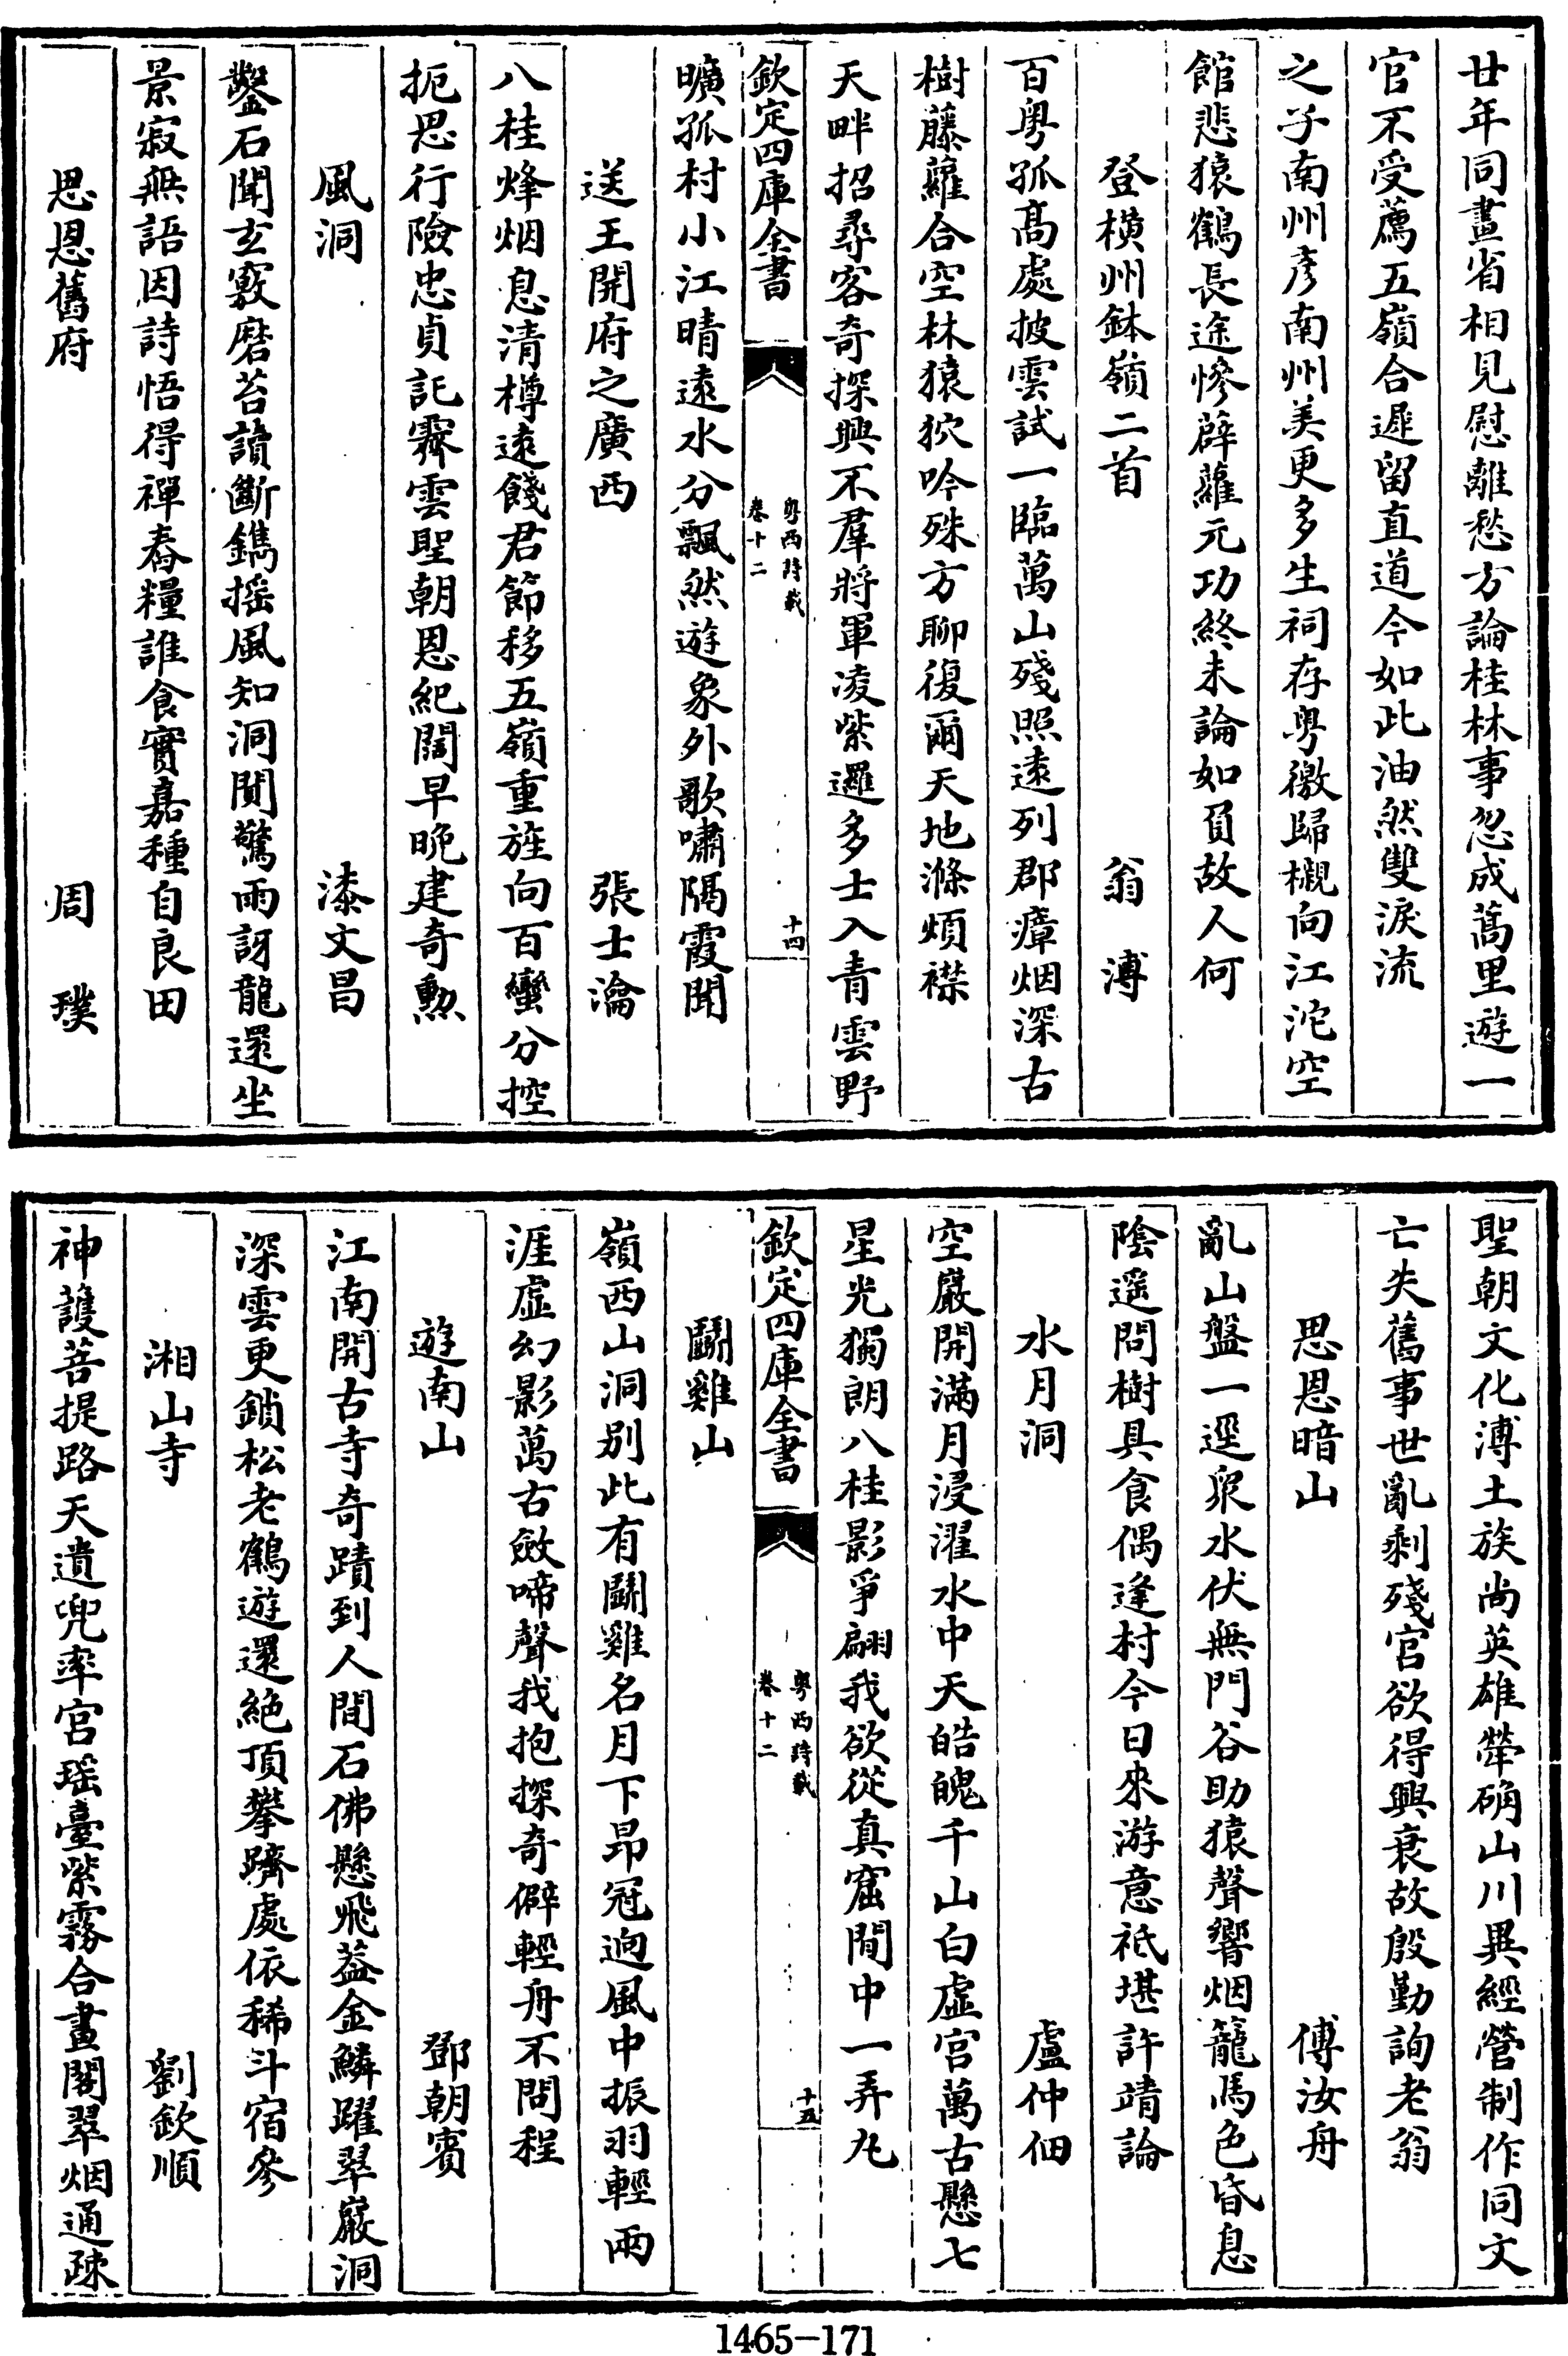 廿年同畫省相見慰離愁方論桂林事忽成萬里遊一
官不受薦五嶺合遲留直道今如此油然雙淚流
之子南州彥南州美更多生祠存粵徼歸櫬向江沱空
館悲猿鶴長途慘薜蘿元功終未論如負故人何
登橫州鉢嶺二首 翁溥
百粵孤高處披雲試一臨萬山殘照遠列郡瘴烟深古
樹藤蘿合空林猿狖吟殊方聊復爾天地滌煩襟
天畔招尋客奇探興不羣將軍凌紫邏多士入青雲野
欽定四庫全書 粵西詩載 卷十二 十四
曠孤村小江晴遠水分飄然遊象外歌嘯隔霞聞
送王開府之廣西 張士瀹
八桂烽烟息清樽遠餞君節移五嶺重旌向百蠻分控
扼思行險忠貞記霽雲聖朝恩紀闊早晚建奇勲
風洞 漆文昌
鑿石聞玄竅磨苔讀斷鐫摇風知洞闃驚雨訝龍還坐
景寂無語因詩悟得禪舂糧誰食實嘉種自良田
思恩舊府 周璞
聖朝文化溥土族尚英雄犖确山川異經營制作同文
亡失舊事世亂剩殘官欲得興衰故殷勤詢老翁
思恩暗山 傅汝舟
亂山盤一逕衆水伏無門谷助猿聲響烟籠馬色昏息
陰遥問樹具食偶逢村今日來游意祇堪許靖論
水月洞 盧仲佃
空巖開滿月浸濯水中天皓魄千山白虛宫萬古懸七
星光獨朗八桂影爭翩我欲從真窟閒中一弄丸
欽定四庫全書 粵西詩載 卷十二 十五
鬭雞山
嶺西山洞别此有鬭雞名月下昂冠迥風中振羽輕兩
涯虛幻影萬古斂啼聲我抱探奇僻輕舟不問程
遊南山 鄧朝賓
江南開古寺奇蹟到人間石佛懸飛葢金鱗躍翠巖洞
深雲更鎖松老鶴遊還絶頂攀躋處依稀斗宿參
湘山寺 劉欽順
神護菩提路天遺兜率宫瑶臺紫霧合畫閣翠烟通疎
1465-171